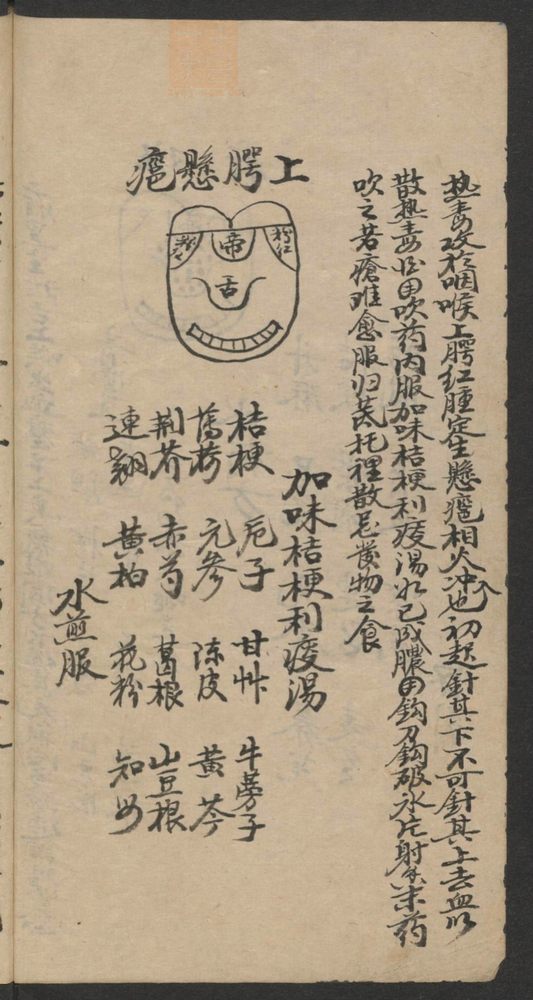 热毒攻於咽喉上腭红腫定生懸癰相火冲也初起針其下不可針其上去血以
散热毒后用吹药内服加味桔梗利痰湯如已成膿用鈎刀鈎破冰片射香末药
吹之若瘡难愈服归芪托裡散忌發物之食
上腭懸癰
粉红
帝
舌
加味桔梗利痰湯
桔梗 卮子 甘艸 牛蒡子
薄荷 元參 陈皮 黄芩
荆芥 赤芍 葛根 山豆根
連翹 黄柏 花粉 知母
水煎服